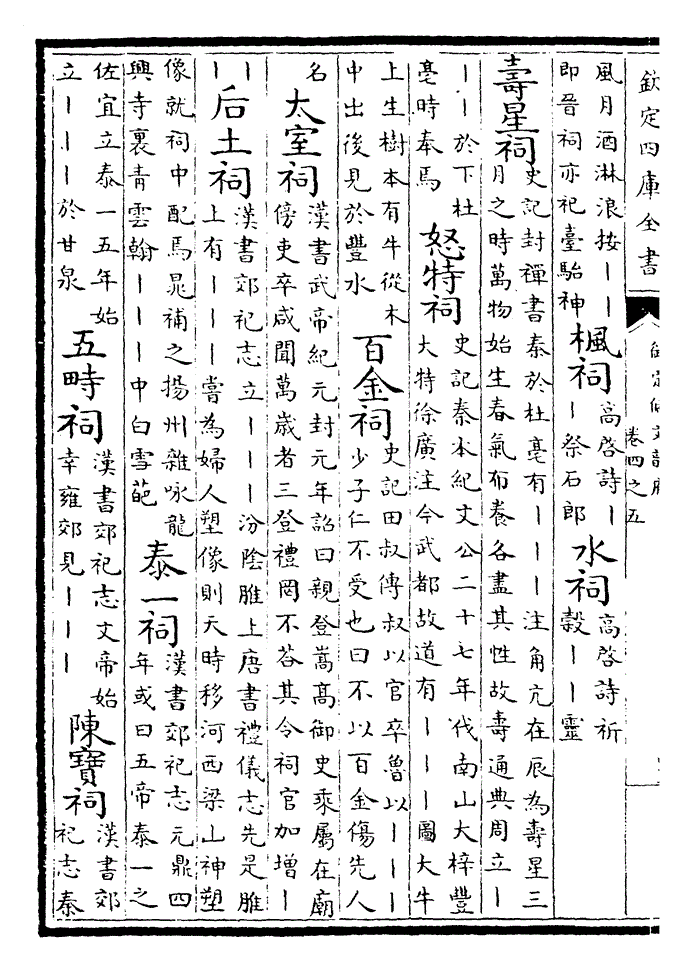 欽定四庫全書
御定佩文韻府
卷四之五
風月酒淋浪按丨丨
即晉祠亦祀臺駘神
楓祠
高啓詩丨
丨祭石郎
水祠
高啓詩祈
榖丨丨靈
壽星祠
史記封禪書秦於杜亳有丨丨丨注角亢在辰為壽星三
月之時萬物始生春氣布養各盡其性故壽通典周立丨
丨丨於下杜
亳時奉焉
怒特祠
史記秦本紀文公二十七年伐南山大梓豐
大特徐廣注今武都故道有丨丨丨圖大牛
上生樹本有牛從木
中出後見於豐水
百金祠
史記田叔傳叔以官卒魯以丨丨丨
少子仁不受也曰不以百金傷先人
名
太室祠
漢書武帝紀元封元年詔曰親登嵩高御史乗屬在廟
傍吏卒咸聞萬歳者三登禮罔不荅其令祠官加增丨
丨丨
后土祠
漢書郊祀志立丨丨丨汾陰脽上唐書禮儀志先是脽
上有丨丨丨嘗為婦人塑像則天時移河西梁山神塑
像就祠中配焉晁補之揚州雜咏龍
興寺裏青雲翰丨丨丨中白雪葩
泰一祠
漢書郊祀志元鼎四
年或曰五帝泰一之
佐宜立泰一五年始
立丨丨丨於甘泉
五畤祠
漢書郊祀志文帝始
幸雍郊見丨丨丨
陳寶祠
漢書郊
祀志泰